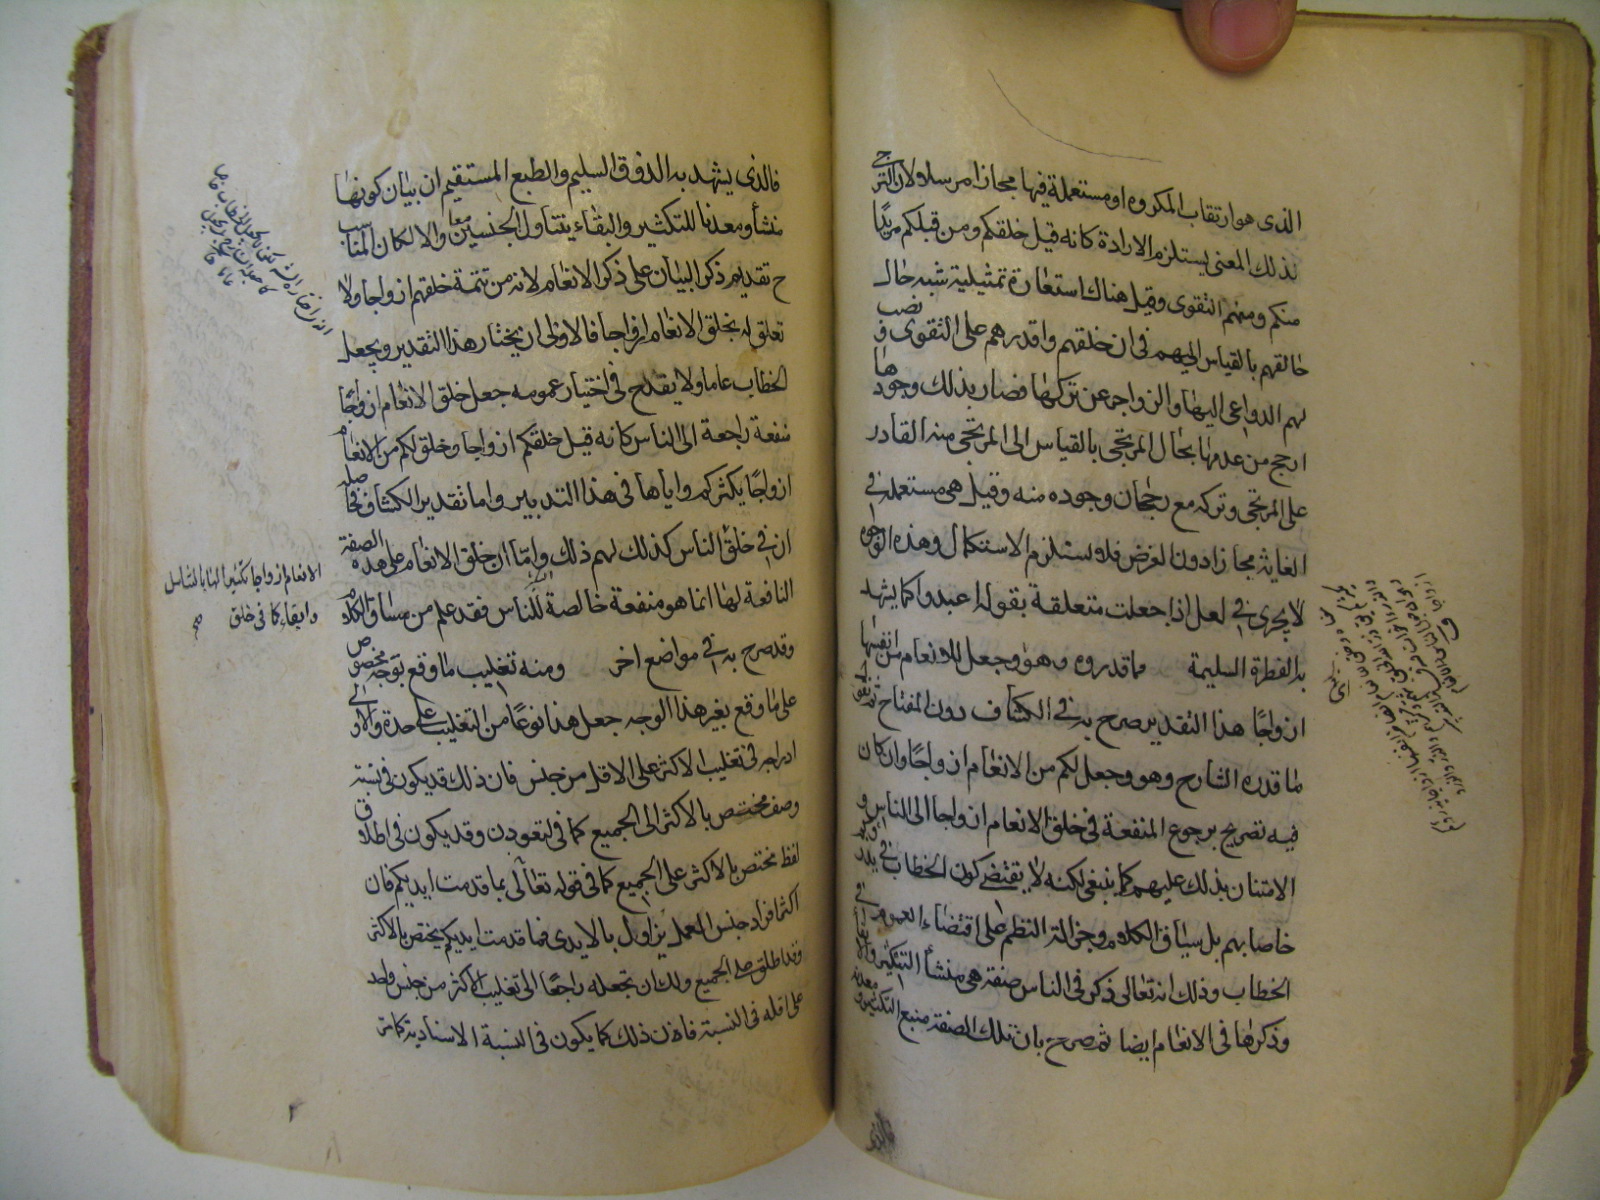 الذى هو ارتقاب المكروه او مستعملة فيها مجازا مرسلا ولان الترجى
بذلك المعنى يستلزم الارادة كانه قيل خلقكم ومن قبلكم مريدا
منكم ومنهم التقوى وقيل هناك استعارة تمثيلية شبه حال
خالقهم بالقياس اليهم فى ان خلقهم واقدرهم على التقوى ونصب
لهم الدواعى اليها والزواجر عن تركها فصار بذلك وجودها
ارجح من عدمها بحال المرتجى بالقياس الى المرتجى منه القادر
على المرتجى وتركه مع رجحان وجوده منه وقيل هى مستعملة فى
الغاية مجازا دون الغرض فلا يستلزم الاستكمال وهذه الوجوه
لا يجرى فى لعل اذا جعلت متعلقة بقوله اعبدوا كما يشهد
به الفطرة السليمة ما قدروه وهو وجعل للانعام من انفسها
ازواجا هذا التقدير صرح به فى الكشاف دون المفتاح
ما قدره الشارح وهو وجعل لكم من الانعام ازواجا وان كان
فيه تصريح برجوع المنفعة فى خلق الانعام ازواجا الى الناس و
الامتنان بذلك عليهم كما ينبغى لكنه لا يقتضى كون الخطاب فى
خاصا بهم بل سياق الكلام وجزالة النظم على اقتضاء العموم فى
الخطاب وذلك انه تعالى ذكر فى الناس صفة هى منشأ التكثير
وذكرها فى الانعام ايضا ثم صرح بان تلك الصفة منبع التكثير
فالذى
فالذى يشهد به الذوق السليم والطبع المستقيم ان بيان كونها
منشأ ومعدنا للتكثير والبقاء يتناول الجنسين معا والا لكان المناسب
ح تقديم ذكر البيان على ذكر الانعام لانه من تتمة خلقهم ازواجا ولا
تعلق له بخلق الانعام ازواجا فالاولى ان يختار هذا التقدير ويجعل
الخطاب عاما ولا يقدح فى اختيار عمومه جعل خلق الانعام ازواجا
منفعة راجعة الى الناس كانه قيل خلقكم ازواجا وخلق لكم من الانعام
ازواجا يكثركم واياها فى هذا التدبير واما تقدير الكشاف فحاصله
ان فى خلق الناس كذلك لهم ذلك واما ان خلق الانعام على هذه الصفة
النافعة لها انما هو منفعة خالصة للناس فقد علم من مساق الكلام
وقد صرح به فى مواضع اخر ومنه تغليب ما وقع بوجه مخصوص
على ما وقع بغير هذا الوجه جعل هذا نوعا من التغليب على حدة والاولى
ادراجه فى تغليب الاكثر على الاقل من جنس فان ذلك قد يكون فى نسبة
وصف مختص بالاكثر الى الجميع كما فى لتعودن وقد يكون فى اطلاق
لفظ مختص بالاكثر على الجميع كما فى قوله تعالى بما قدمت ايديكم فان
اكثر افراد جنس العمل يزاول بالايدى فما قدمت ايديكم يختص بالاكثر
وقد اطلق على الجميع ولك ان تجعله راجعا الى تغليب الاكثر من جنس واحد
على اقله فى النسبة فان ذلك كما يكون فى النسبة الاسنادية كما مر
الانعام ازواجا تكثيرا لها بالتناسل
وابقاء كما فى خلق
صح